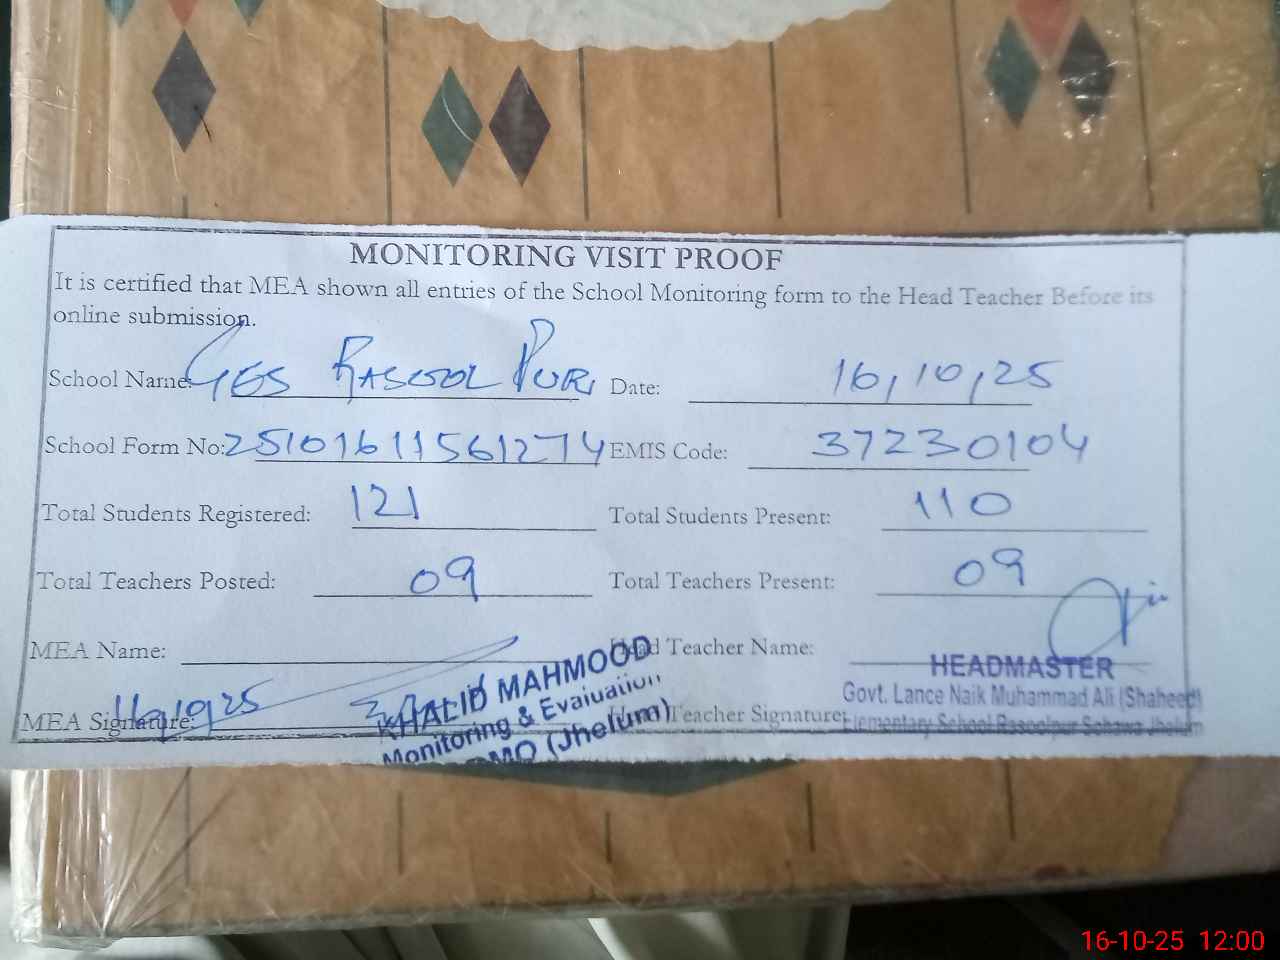 MONITORING VISIT PROOF
It is certified that MEA shown all entries of the School Monitoring form to the Head Teacher Before its
online submission.
School Name: GES RASOOL PUR Date: 16,10,25
School Form No: 25101611561274 EMIS Code: 37230104
Total Students Registered: 121 Total Students Present: 110
Total Teachers Posted: 09 Total Teachers Present: 09
MEA Name: Head Teacher Name:
MEA Signature: 16/10/25 Teacher Signature:
KHALID MAHMOOD
Monitoring & Evaluation
(Jhelum)
HEADMASTER
Govt. Lance Naik Muhammad Ali (Shaheed)
Elementary School Rasoolpur Sohawa Jhelum
16-10-25 12:00